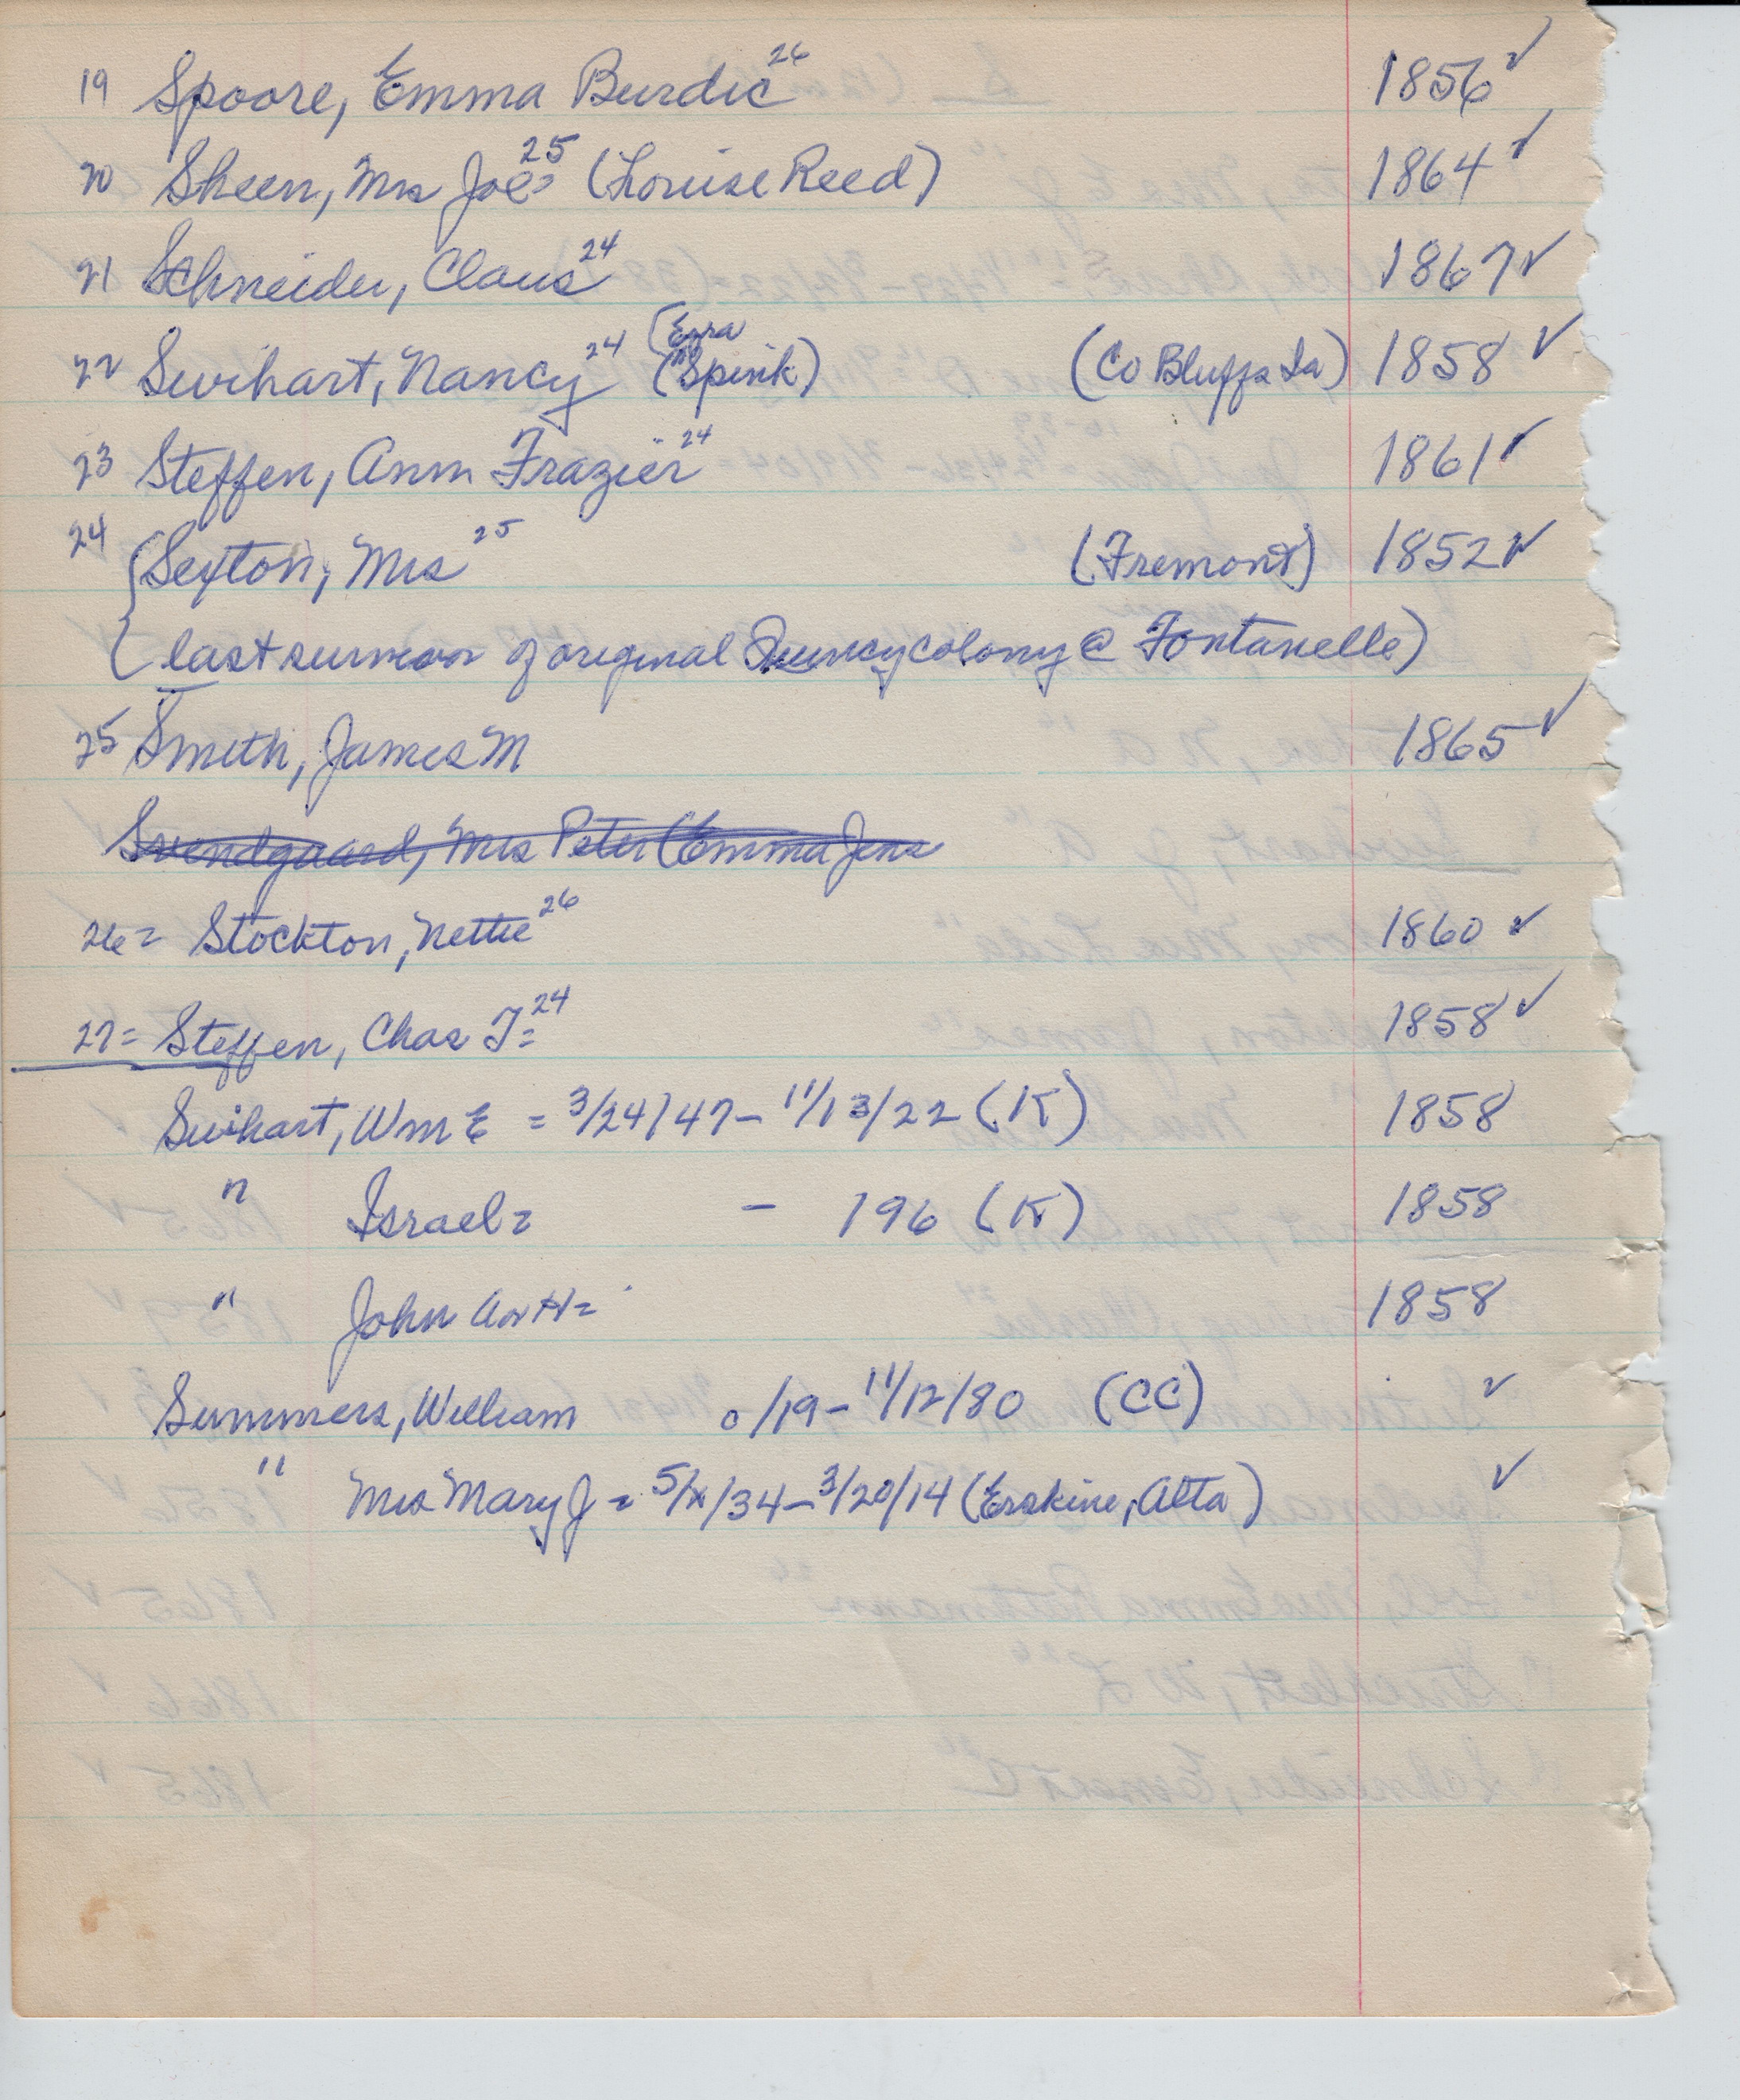 19 Spoore, Emma Burdic 26 1856 ✓
20 Sheen, Mrs Joe 25 (Louise Reed) 1864 ✓
21 Schneider, Claus 24 1867 ✓
(Ezra
22 Swihart, Nancy 24 (Spink) (Co Bluffs Ia) 1858 ✓
23 Steffen, Ann Frazier 24 1861 ✓
24 (Sexton, Mrs 25 (Fremont) 1852 ✓
(last survivor of original Quincy colony @ Fontanelle)
25 Smith, James M 1865 ✓
Svendgaard, Mrs Peter (Emma Jens
26= Stockton, Nettie 26 1860 ✓
27= Steffen, Chas T= 24 1858 ✓
Swihart, Wm E = 3/24/47 - 11/13/22 (K) 1858
" Israel= - 196 (K) 1858
" John A or H= 1858
Summers, William 0/19 - 11/12/80 (CC) ✓
" Mrs Mary J = 5/x/34 - 3/20/14 (Erskine, Alta) ✓